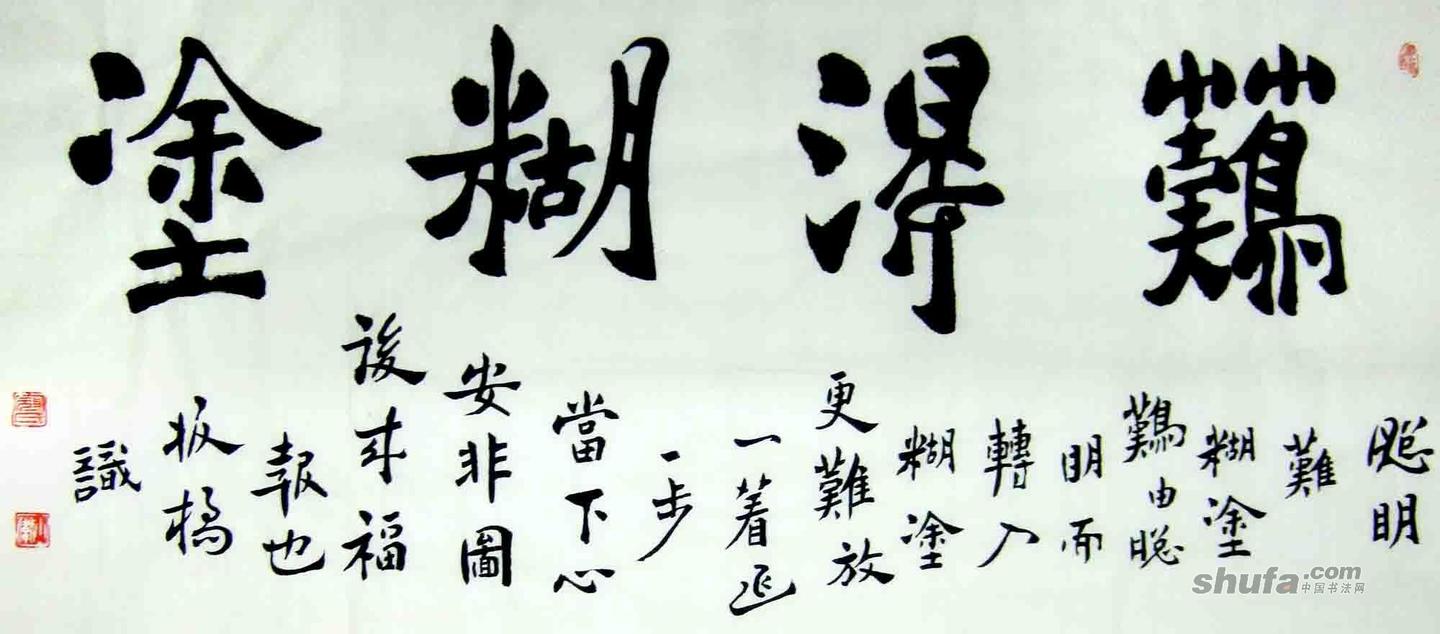 難得糊塗
聰明
難
糊塗
難由聰
明而
轉入
糊塗
更難放
一着退
一步
當下心
安非圖
後来福
報也
板橋
識
shufa.com
中国书法网